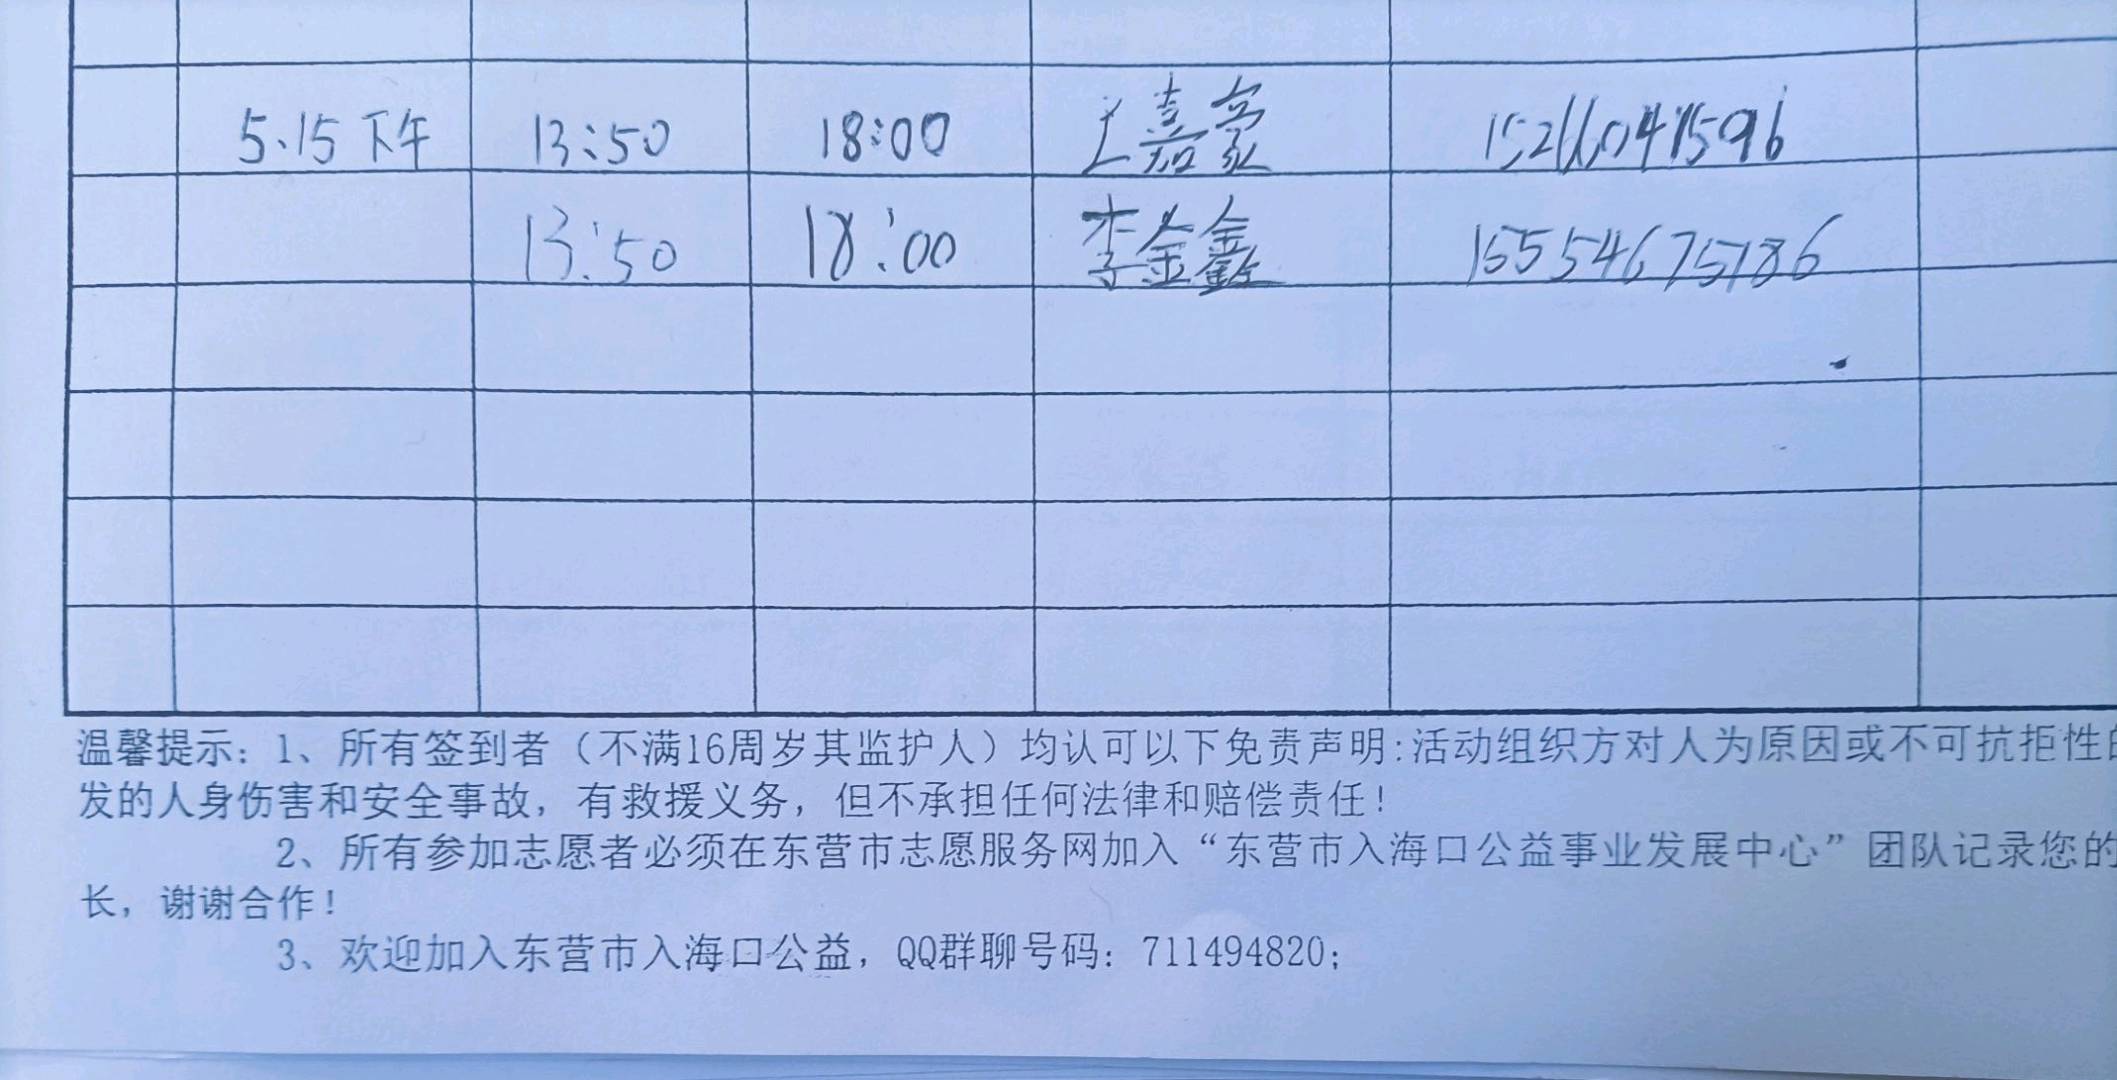 5.15下午 13:50 18:00 王嘉豪 15266041596
13:50 18:00 李金鑫 15554675786
温馨提示：1、所有签到者（不满16周岁其监护人）均认可以下免责声明:活动组织方对人为原因或不可抗拒性
发的人身伤害和安全事故，有救援义务，但不承担任何法律和赔偿责任！
2、所有参加志愿者必须在东营市志愿服务网加入“东营市入海口公益事业发展中心”团队记录您的
长，谢谢合作！
3、欢迎加入东营市入海口公益，QQ群聊号码：711494820；